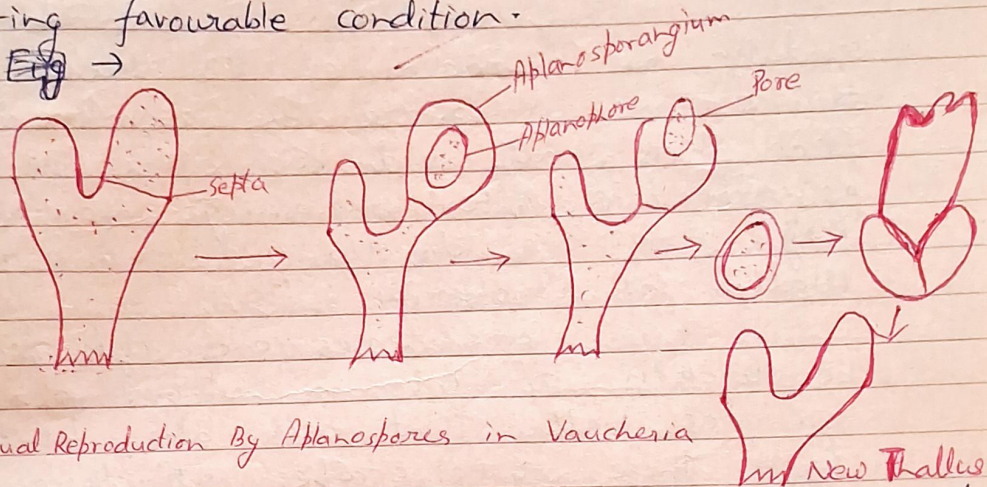 -ing favourable condition.
Fig →
Aplanosporangium
Pore
Aplanophore
septa
ual Reproduction By Aplanospores in Vaucheria
New Thallus